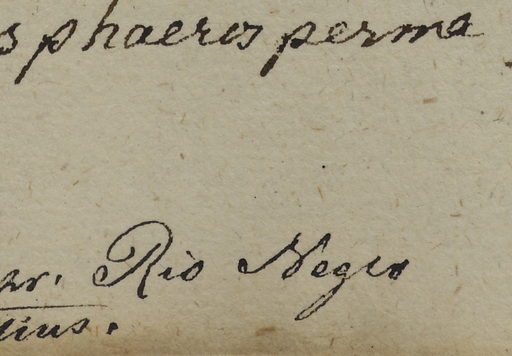 sphaerosperma
ar. Rio Negro
tius.